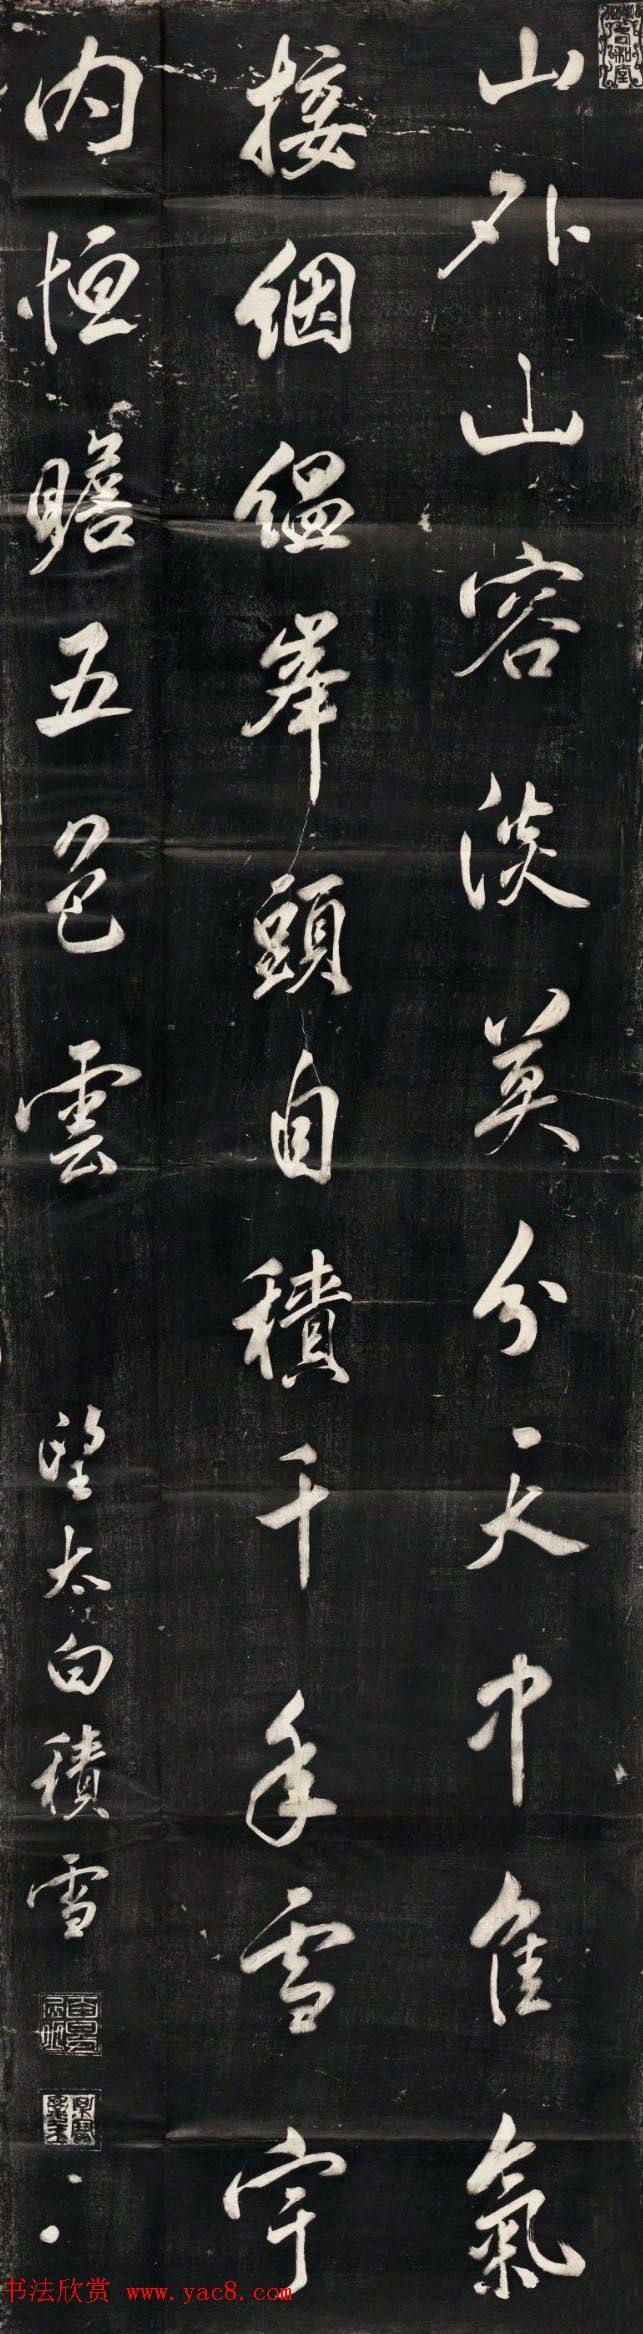 山外山容淡莫分天中佳氣
接絪縕峯頭自積千年雪宇
内恒瞻五色雲
望太白積雪
书法欣赏 www.yac8.com